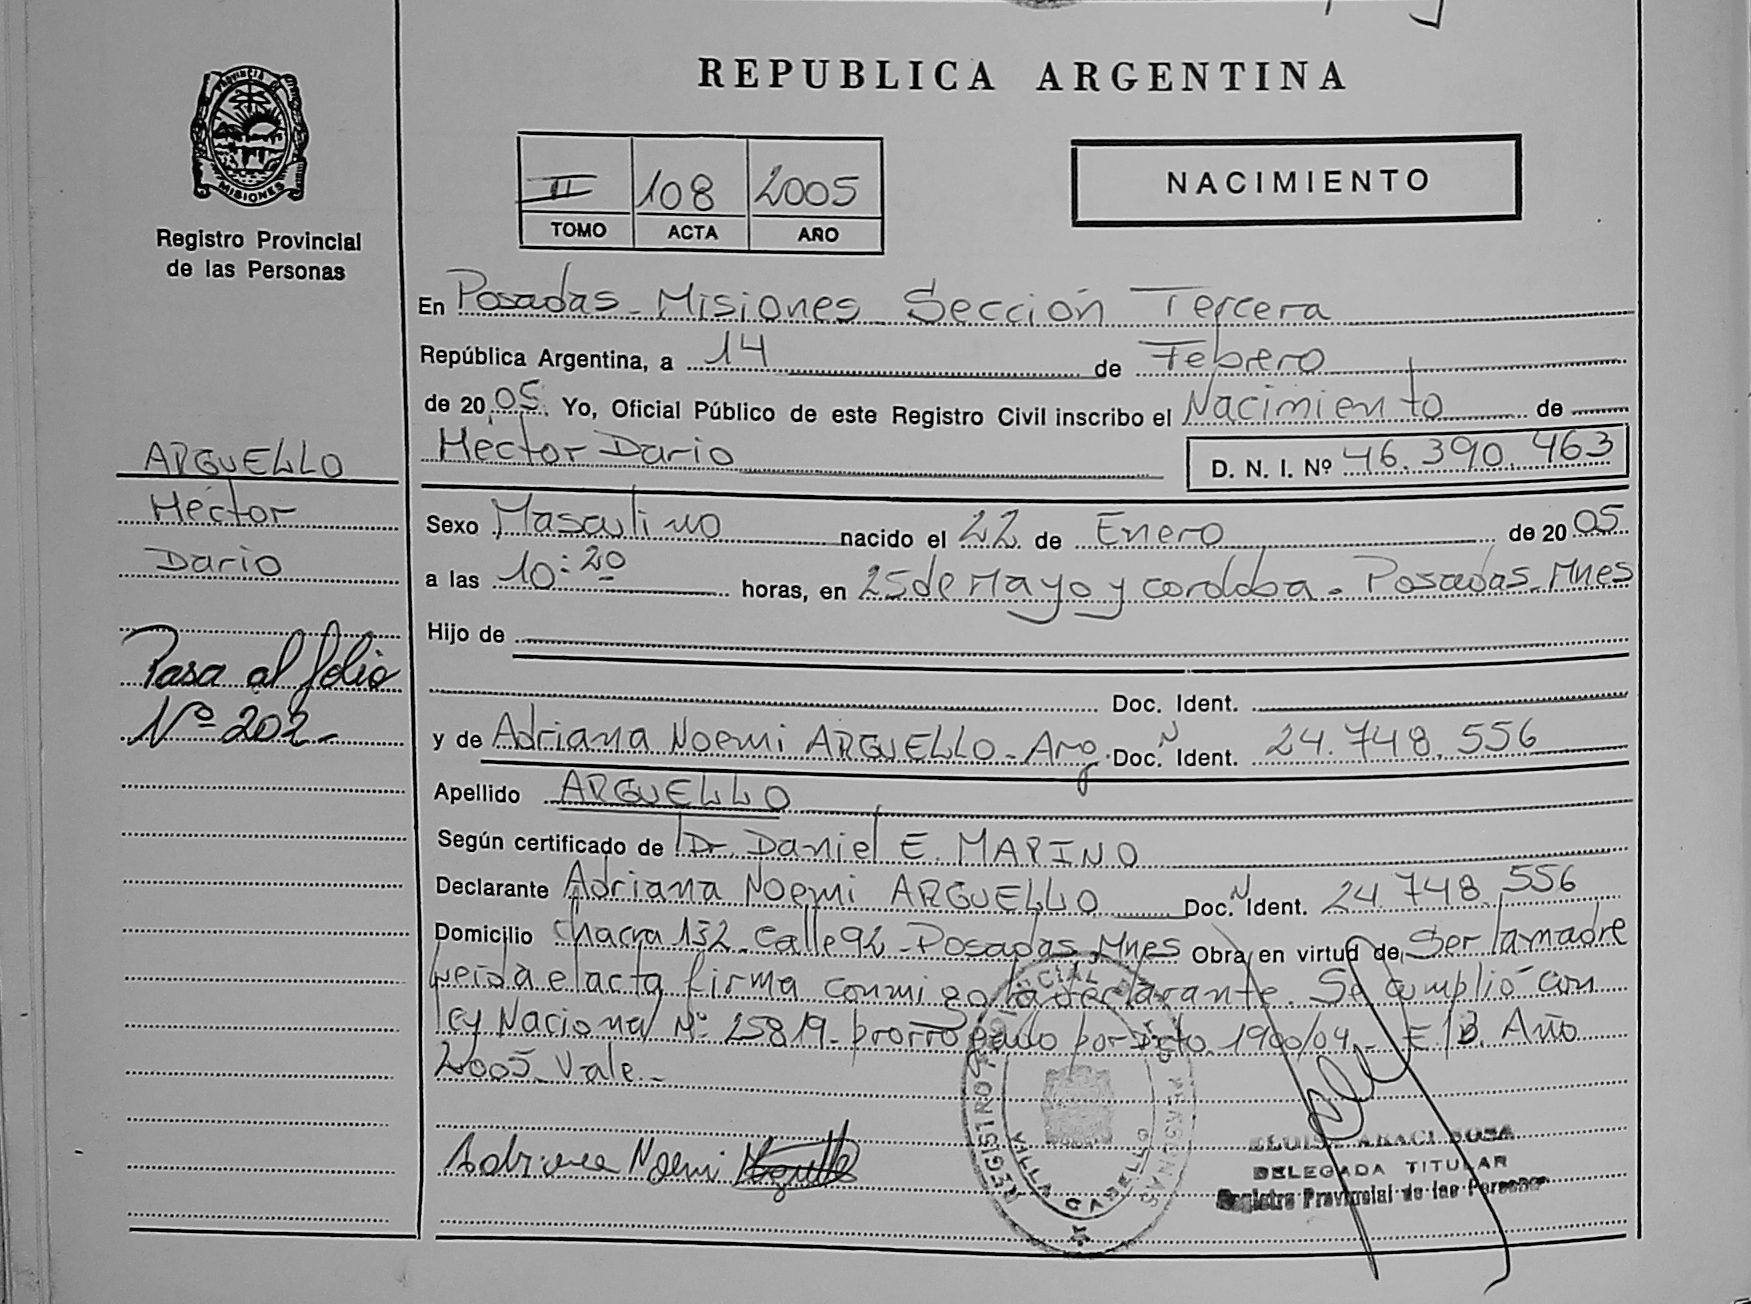 REPUBLICA ARGENTINA
PROVINCIA D
MISIONES
Registro Provincial
de las Personas
II 108 2005
TOMO ACTA AÑO
NACIMIENTO
En Posadas - Misiones Sección Tercera
República Argentina, a 14 de Febrero
de 2005. Yo, Oficial Público de este Registro Civil inscribo el Nacimiento de
Héctor Dario D. N. I. Nº 46.390.463
ARGUELLO
Héctor
Dario
Pasa al folio
Nº 202-
Sexo Masculino nacido el 22 de Enero de 2005
a las 10:20 horas, en 25 de Mayo y cordoba - Posadas - Mnes
Hijo de
Doc. Ident.
y de Adriana Noemi ARGUELLO - Arg. Doc. N Ident. 24.748.556
Apellido ARGUELLO
Según certificado de Dr. Daniel E. MARINO
Declarante Adriana Noemi ARGUELLO Doc. N Ident. 24.748.556
Domicilio Chacra 132 - Calle 92 - Posadas Mnes Obra en virtud de Ser la madre
Leida el acta firma conmigo la declarante. Se cumplió con
ley Nacional Nº 25819 - prorrogado por Dcto 1900/04 - E/B. Año
2005 Vale.-
Adriana Noemi
REGISTRO
VILLA CABELLO
DELEGADA TITULAR
Registro Provincial de las Personas